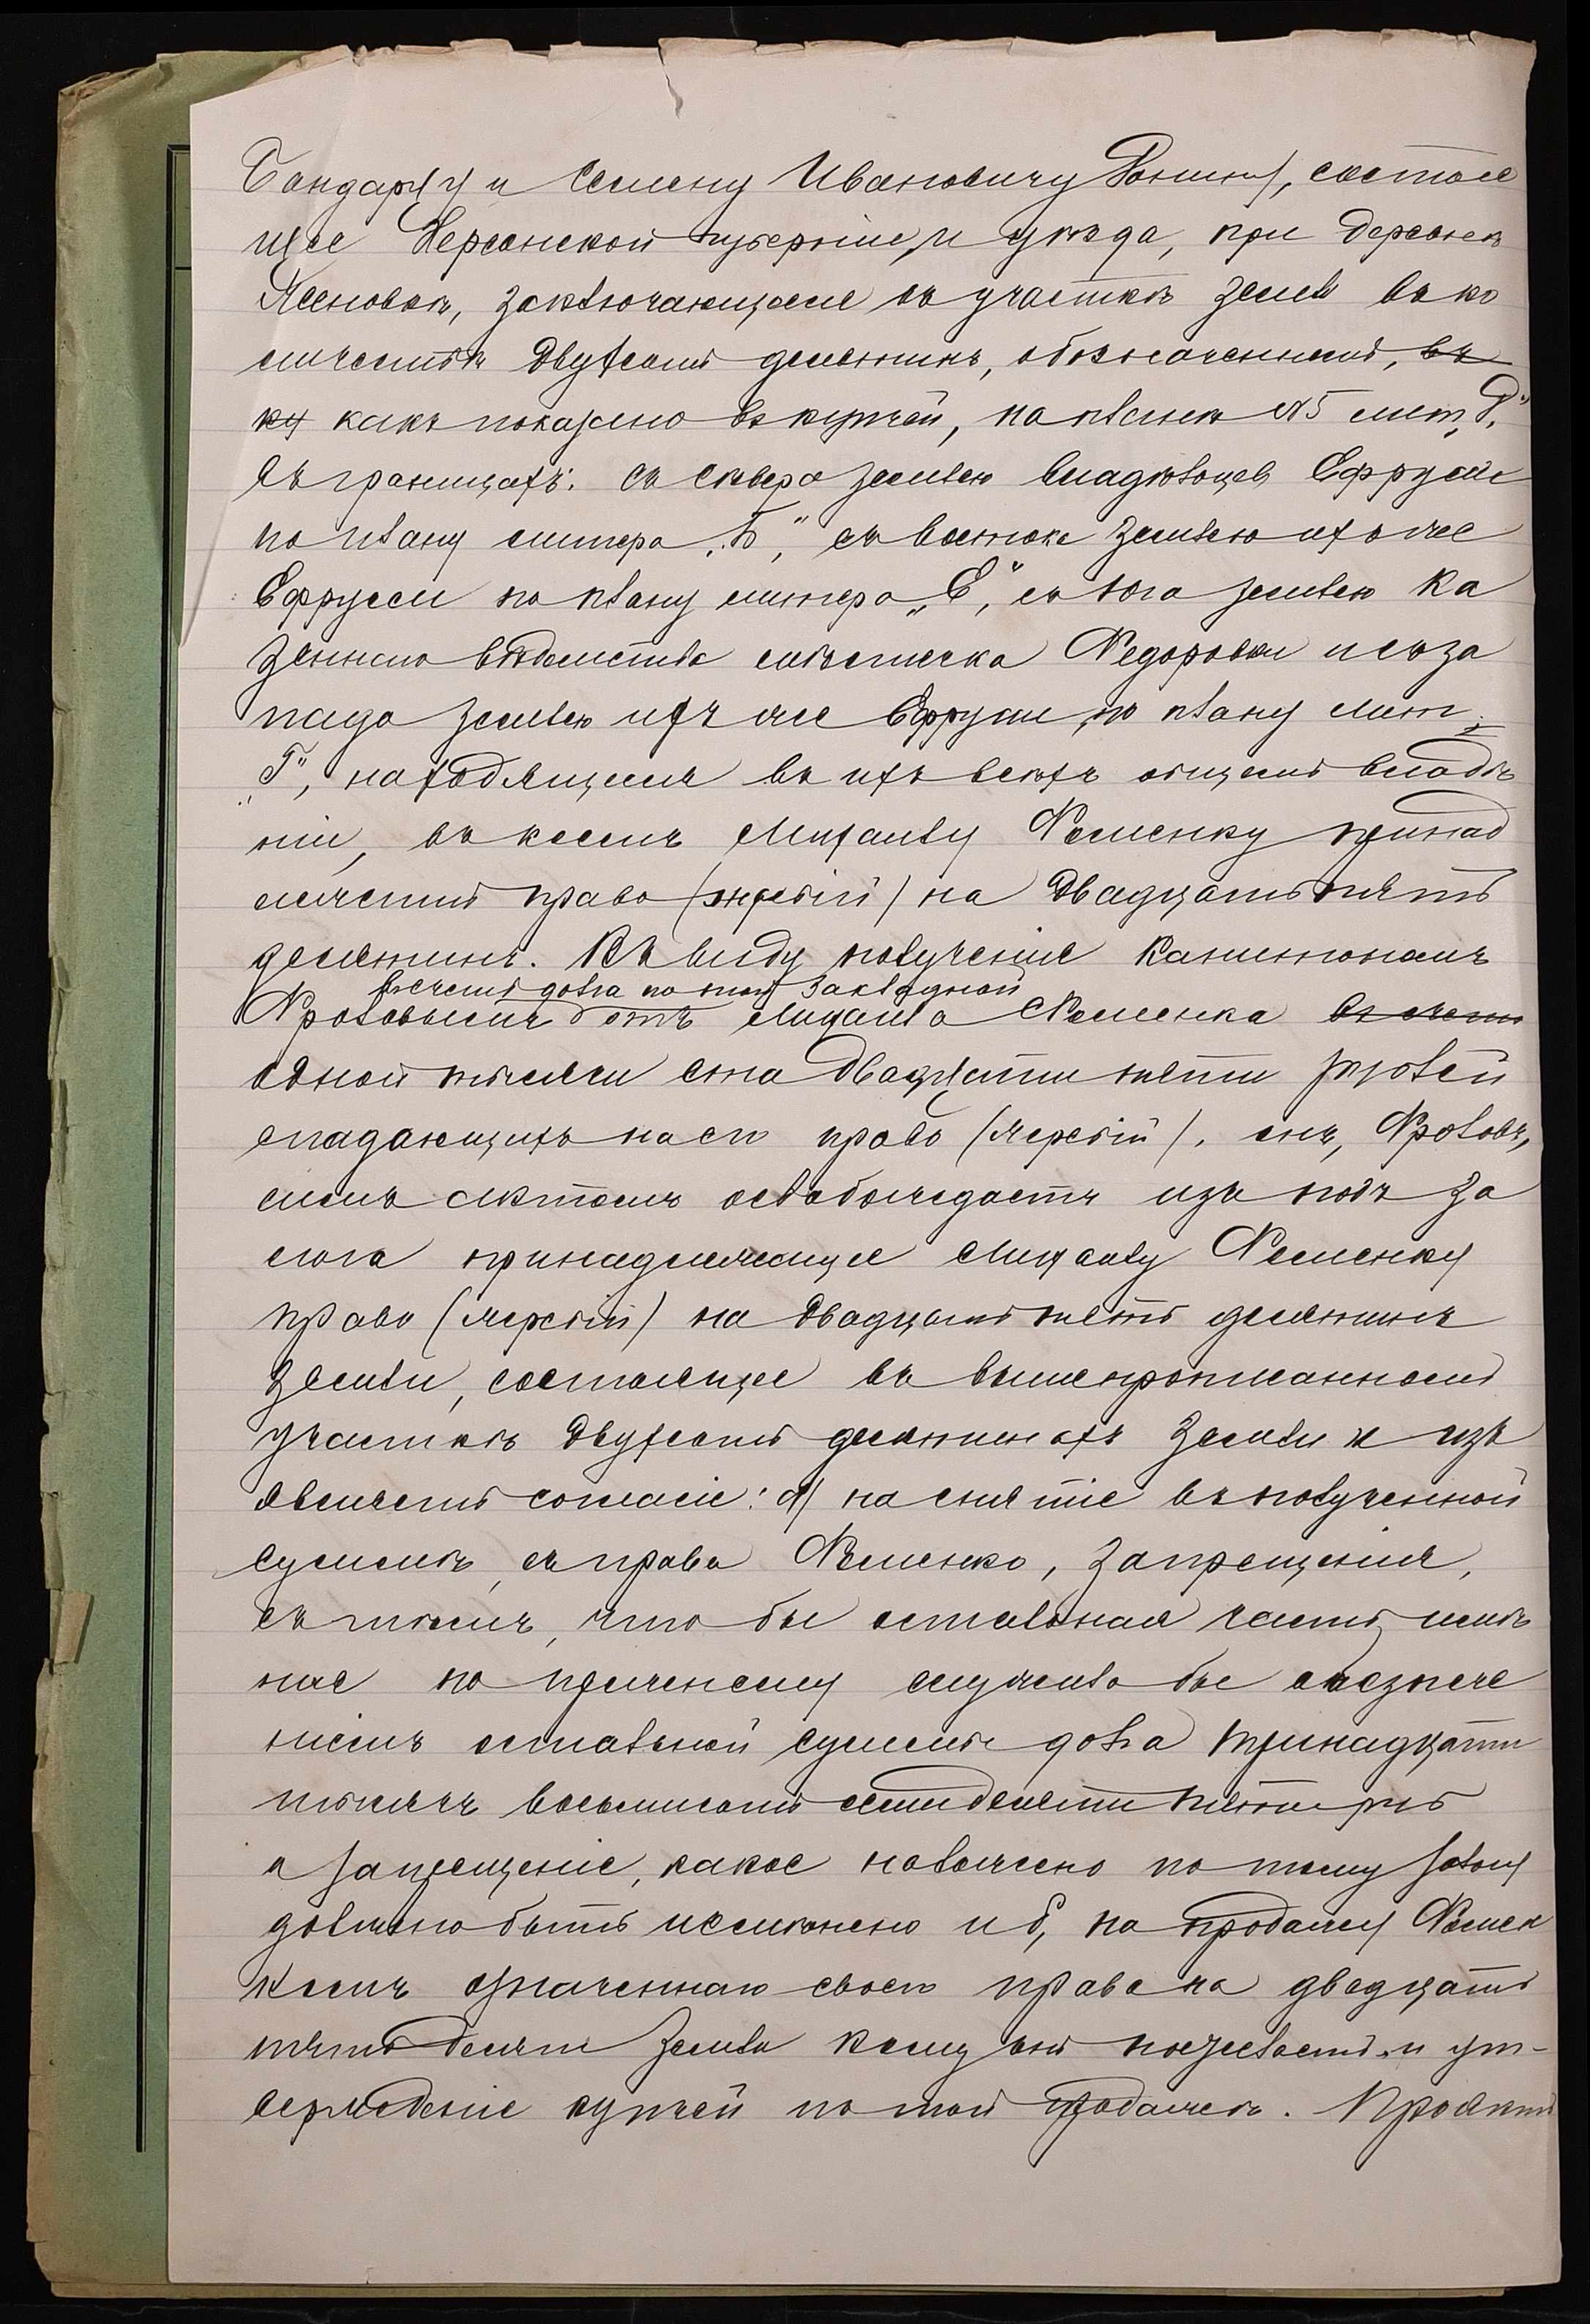 Бандарцу и Семену Ивановичу Ронину, состоя
щее Херсонской губернии и уѣзда, при деревнѣ
Ясеновкѣ, заключающееся въ участкѣ земли въ ко
личествѣ двухсотъ десятинъ, обозначенномъ, въ
ку какъ показано въ купчей, на планѣ №5 лит. „Д“
въ границахъ: съ сѣвера землею владѣльцев Ефруси
по плану литера „Б“, съ востока землею ихъ же
Ефрусси по плану литера „Е“, съ юга землею Ка
зеннаго вѣдомства мѣстечка Федоровки и съ за
пада землею ихъ же Ефруси, по плану лит.
„Г“, находящемся въ ихъ всѣхъ общемъ владѣ
ніи, въ коемъ Михаилу Фоменку принад
лежитъ право (жребій) на двадцать пять
десятинъ. Въ виду полученія Капитономъ
въ счетъ долга по этой закладной
Фроловымъ отъ Михаила Фоменка въ счетъ
одной тысячи ста двадцати пяти рублей
спадающихъ на его право (жребій), онъ, Фроловъ,
симъ актомъ освобождаетъ изъ подъ за
лога принадлежащее Михаилу Фоменку
право (жребій) на двадцать пять десятинъ
земли, состоящее въ вышепрописанномъ
участкѣ двухсотъ десятинахъ земли и изъ
являетъ согласіе: а) на снятіе въ полученной
суммѣ, съ права Фоменко, запрещенія,
съ тѣмъ, что бы остальная часть имѣ
нія по прежнему служила бы обезпече
ніемъ остальной суммы долга тринадцати
тысячъ восьмисотъ семидесяти пяти руб
а запрещеніе, какое наложено по тому залогу
должно быть исключено и б) на продажу Фомен
комъ означеннаго своего права на двадцать
пять десят земли кому онъ пожелаетъ и ут-
вержденіе купчей по той продажѣ. Проэктъ